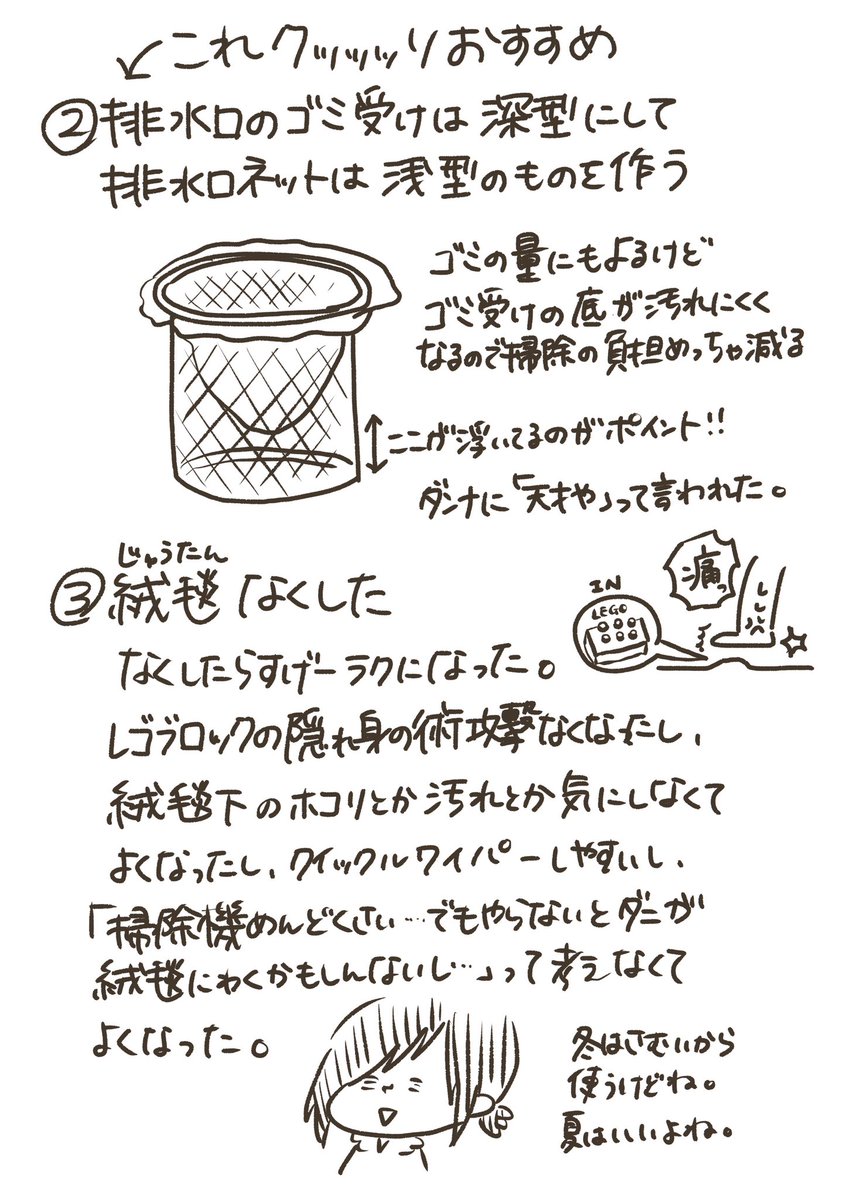 これクッッッソおすすめ
②排水口のゴミ受けは深型にして
排水口ネットは浅型のものを作う
ゴミの量にもよるけど
ゴミ受けの底が汚れにくく
なるので掃除の負担めっちゃ減る
ここが浮いてるのがポイント!!
ダンナに「天才や」って言われた。
じゅうたん
③絨毯なくした
IN
LEGO
痛っ
なくしたらすげーラクになった。
レゴブロックの隠れ身の術攻撃なくなったし、
絨毯下のホコリとか汚れとか気にしなくて
よくなったし、クイックルワイパーしやすいし、
「掃除機めんどくさい…でもやらないとダニが
絨毯にわくかもしんないし…」って考えなくて
よくなった。
冬はさむいから
使うけどね。
夏はいいよね。